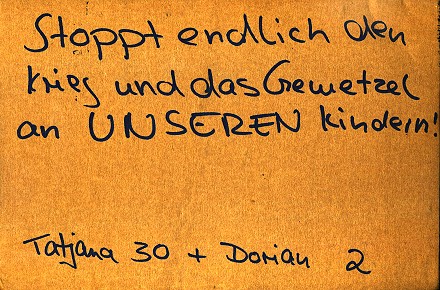 Stoppt endlich den
Krieg und das Gemetzel
an UNSEREN Kindern!
Tatjana 30 + Dorian 2